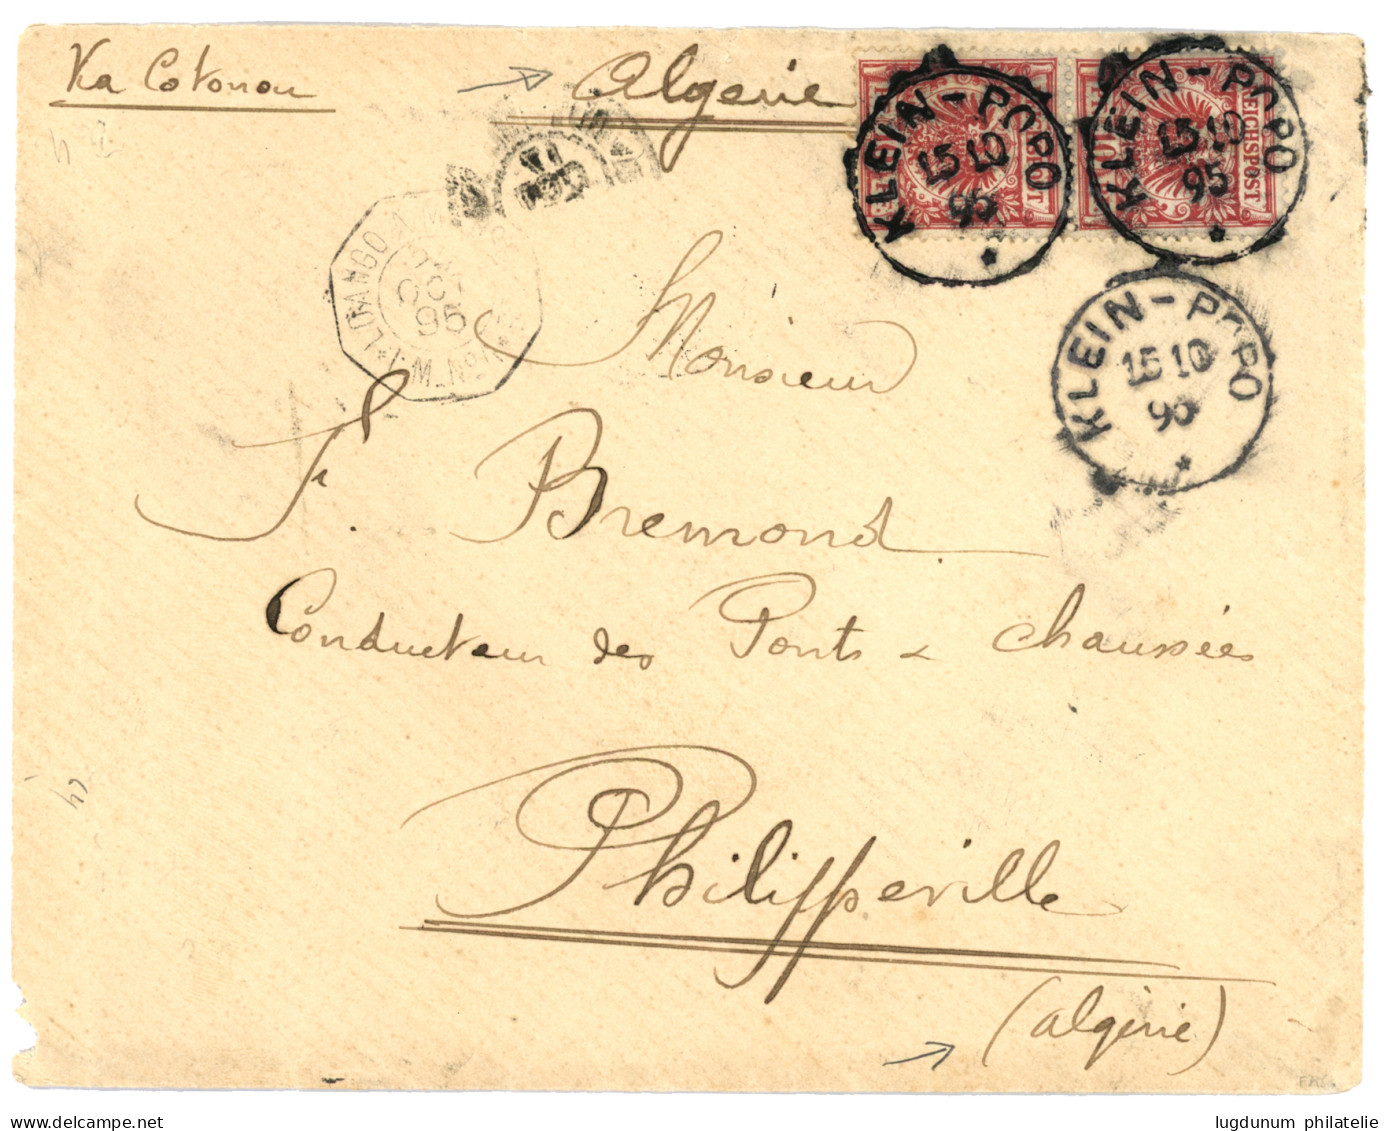 Via Cotonou
Algérie
KLEIN-POPO
15 10
95
REICHSPOST
KLEIN-POPO
15 10
95
LOANGO
OCT
95
KLEIN-POPO
15 10
95
Monsieur
F. Bremond
Conducteur des Ponts & chaussées
Philippeville
(algérie)
lugdunum philatelie